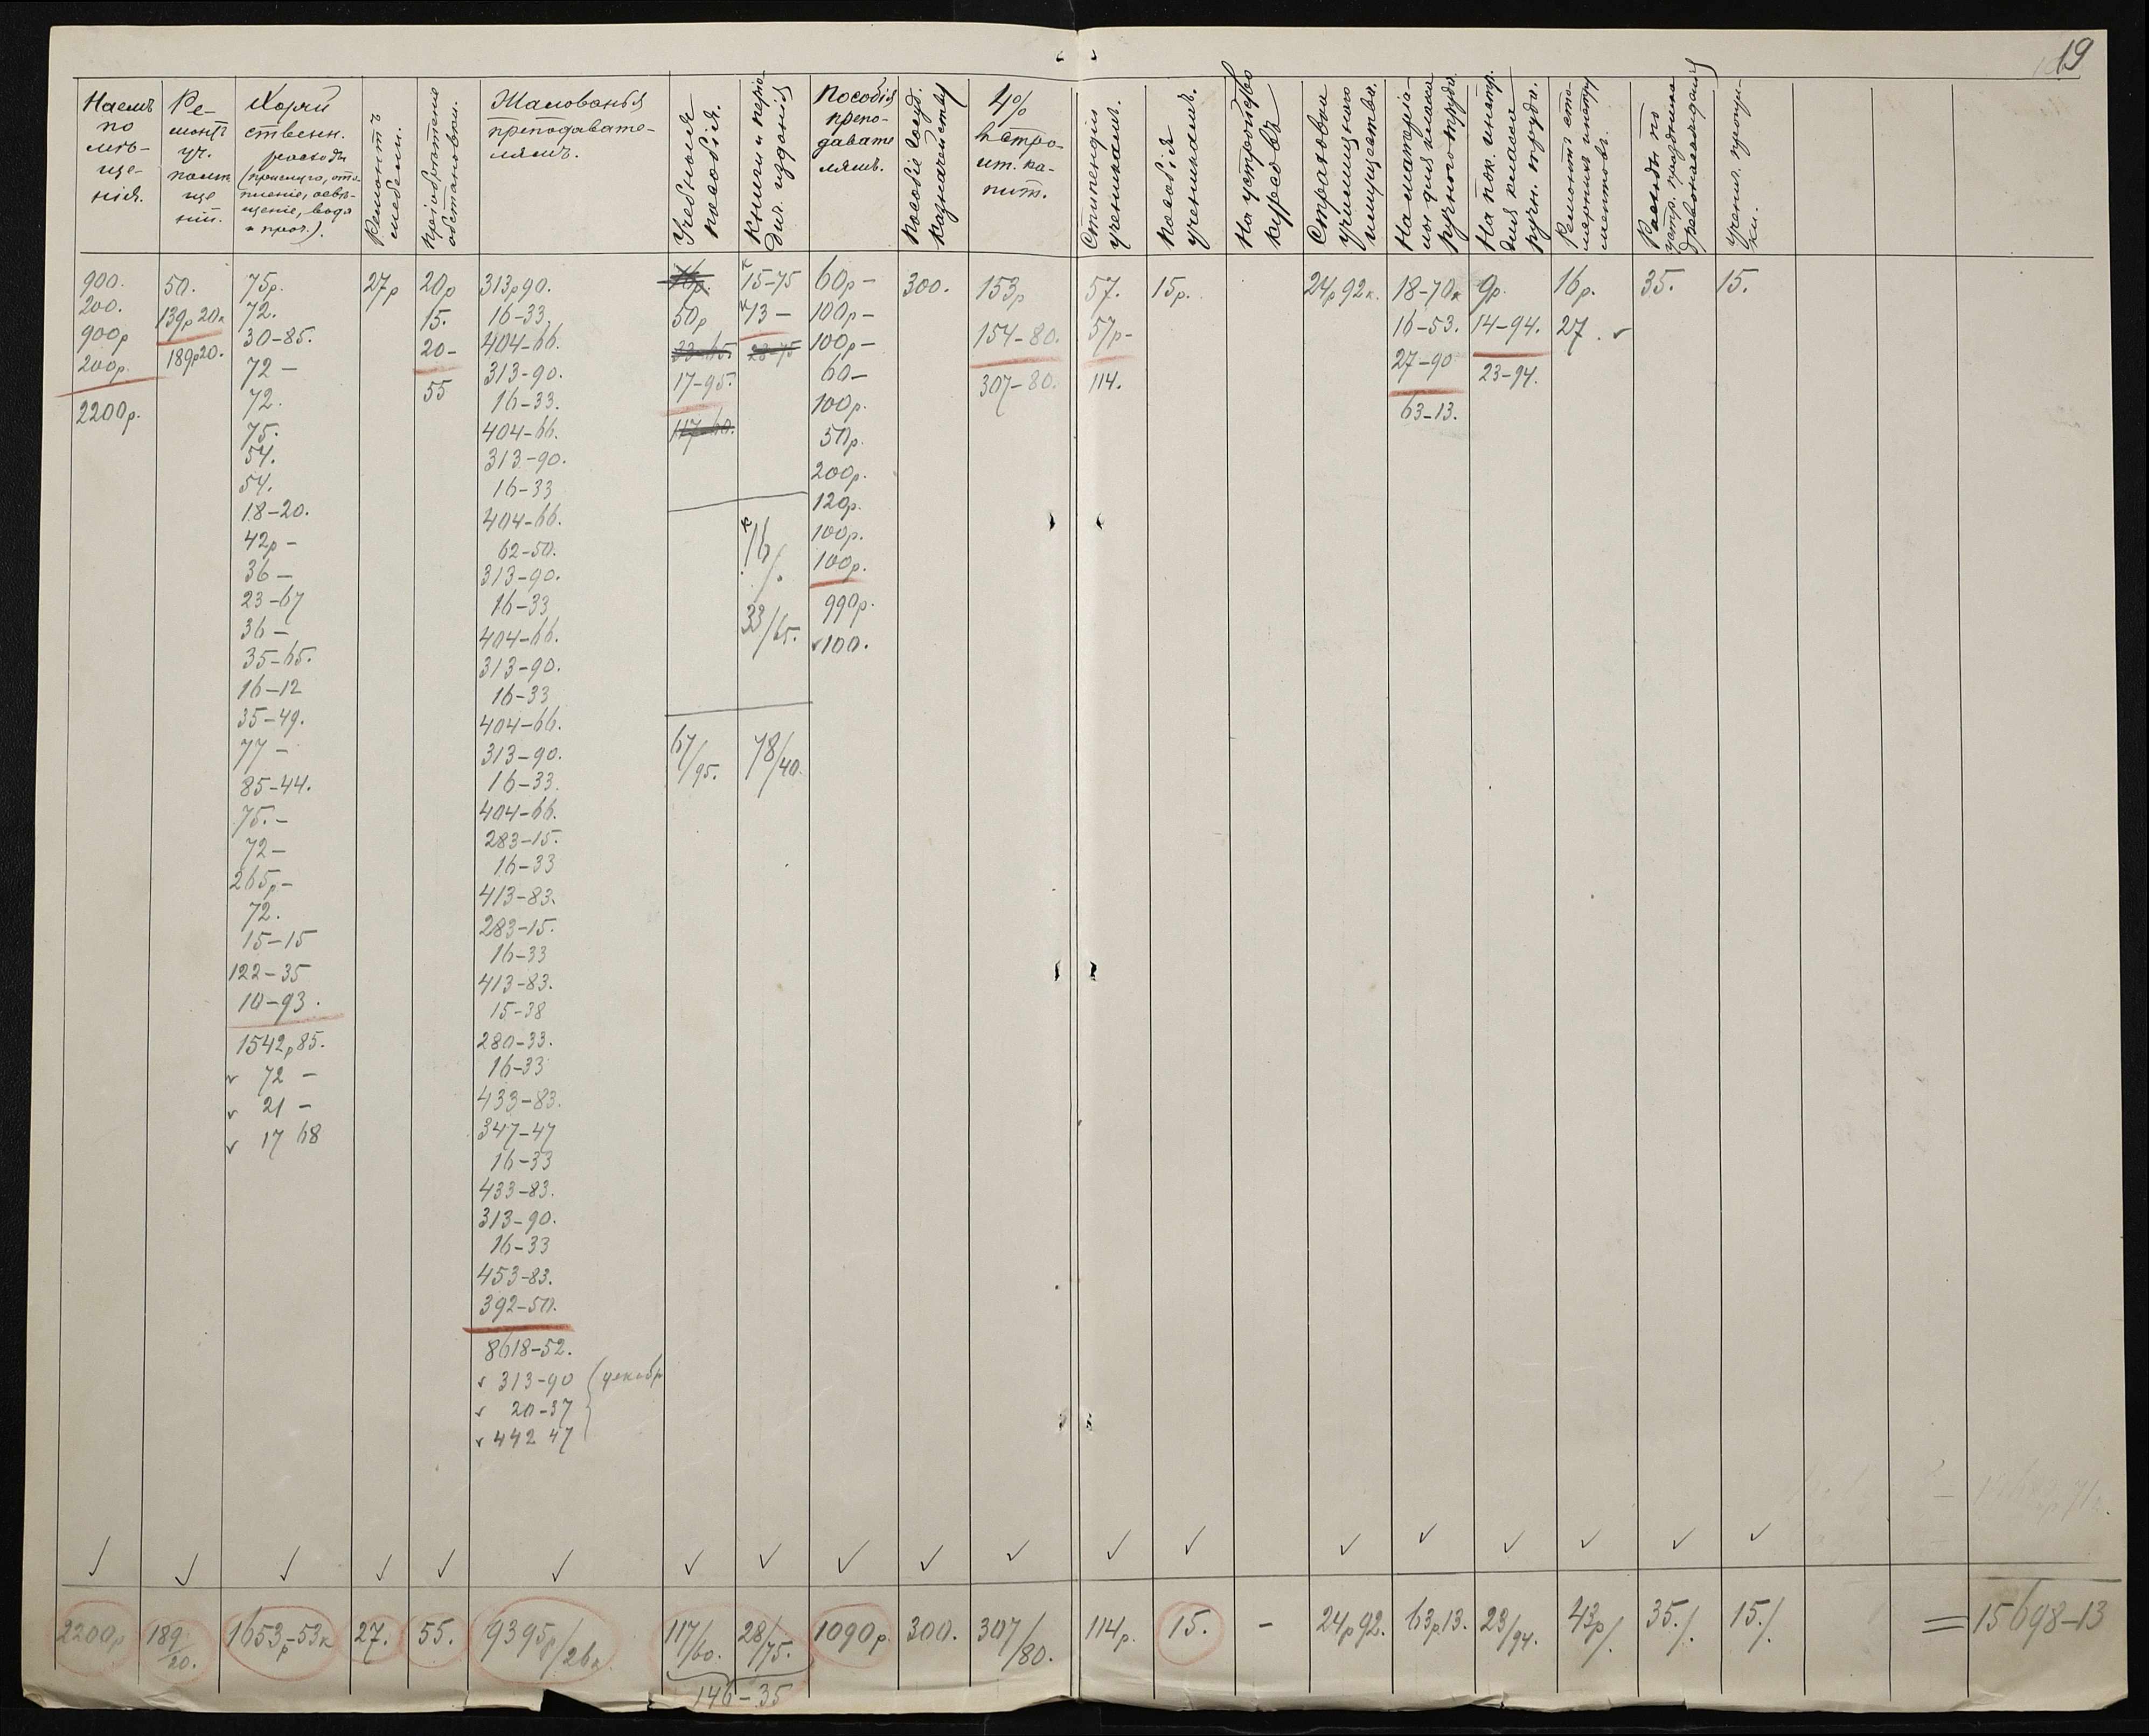 19
Наемъ
по
мѣ-
ще-
нія.
900.
200.
900р
200р.
2200р.
2200р
Ре-
монтъ
уч.
помѣ
ще
ній.
50.
139р 20к
189р20.
189/20.
Хозяй
ственн.
расходы
(прислуга, ото-
пленіе, освѣ-
щеніе, вода
и проч.).
75р.
72.
30-85.
72 -
72.
75.
54.
54.
18-20.
42р -
36 -
23-67
36 -
35-65.
16-12
35-49.
77 -
85-44.
75. -
72 -
265р -
72.
15-15
122-35
10-93.
1542р85.
72 -
21 -
17 68
1653р-53к
Ремонтъ
мебели.
27р
27.
Пріобрѣтеніе
обстановки.
20р
15.
20-
55
55.
Жалованья
преподавате-
лямъ.
313р90.
16-33.
404-66.
313-90.
16-33.
404-66.
313-90.
16-33
404-66.
62-50.
313-90.
16-33
404-66.
313-90.
16-33
404-66.
313-90.
16-33.
404-66.
283-15.
16-33
413-83.
283-15.
16-33
413-83.
15-38
280-33.
16-33
433-83.
347-47
16-33
433-83.
313-90.
16-33
453-83.
392-50.
8618-52.
313-90 (декабр
20-37
442 47
9395р/26к.
Учебныя
пособія.
16р.
50р
33-65.
17-95.
117-60.
67/95.
117/60.
Книги и періо-
дич. изданія
15-75
13 -
28-75
16/.
33/65.
78/40.
28/75.
146-35
Пособія
препо-
давате
лямъ.
60р -
100р -
100р -
60 -
100р.
50р.
200р.
120р.
100р.
100р.
990р.
100.
1090р.
Пособіе Госуд.
казначейству
300.
300.
4%
съ строи-
т. ка-
пит.
153р
154-80.
307-80.
307/80.
Стипендіи
ученикамъ.
57.
57р -
114.
114р.
Пособія
ученикамъ.
15р.
15.
На устройство
курсовъ
-
Страховки
училищнаго
имущества.
24р 92к.
24р92.
На матеріа-
лы для класса
ручного труда
18-70к
16-53.
27-90
63-13.
63р13.
На пок. инстр.
для класса
ручн. труда.
9р.
14-94.
23-94.
23/94.
16р.
27.
43р/.
Расходы по
устр. праздника
древонасажденія
35.
35./.
15.
15./.
= 15698-13